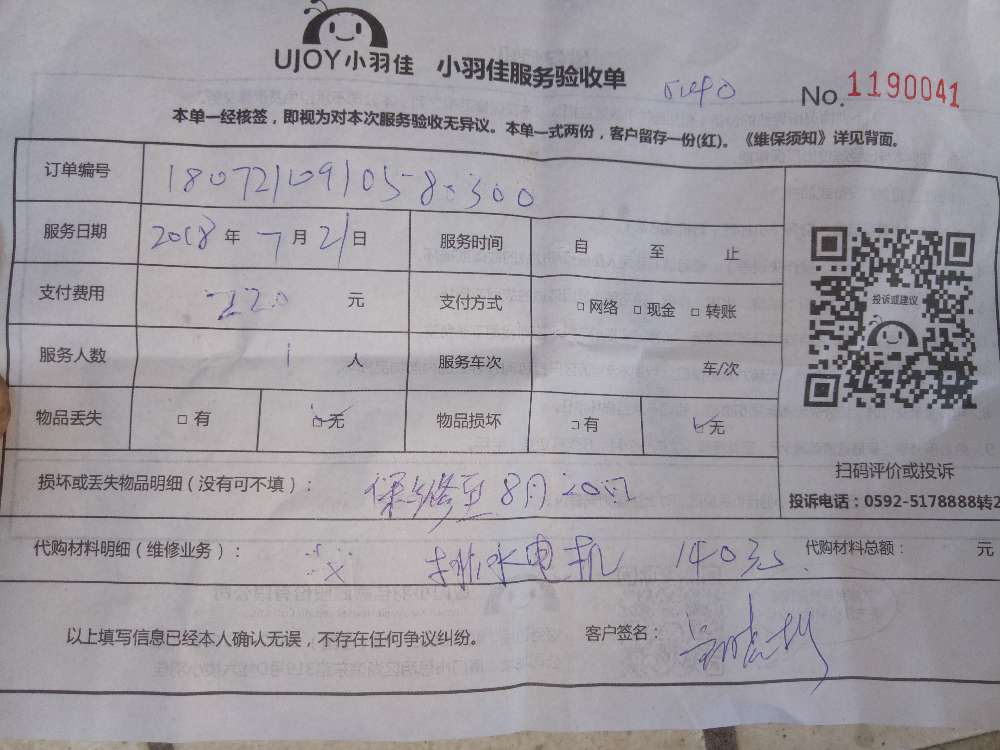 UJOY小羽佳 小羽佳服务验收单 No. 1190041
本单一经核签，即视为对本次服务验收无异议。本单一式两份，客户留存一份(红)。《维保须知》详见背面。
订单编号 1807210910580300
服务日期 2018年7月21日 服务时间 自 至 止
支付费用 220 元 支付方式 □网络 □现金 □转账
服务人数 1 人 服务车次 车/次
物品丢失 □有 ☑无 物品损坏 □有 ☑无
投诉或建议
扫码评价或投诉
投诉电话：0592-5178888转2
损坏或丢失物品明细（没有可不填）： 保修至8月20日
代购材料明细（维修业务）： 排水电机 140元 代购材料总额： 元
以上填写信息已经本人确认无误，不存在任何争议纠纷。 客户签名：